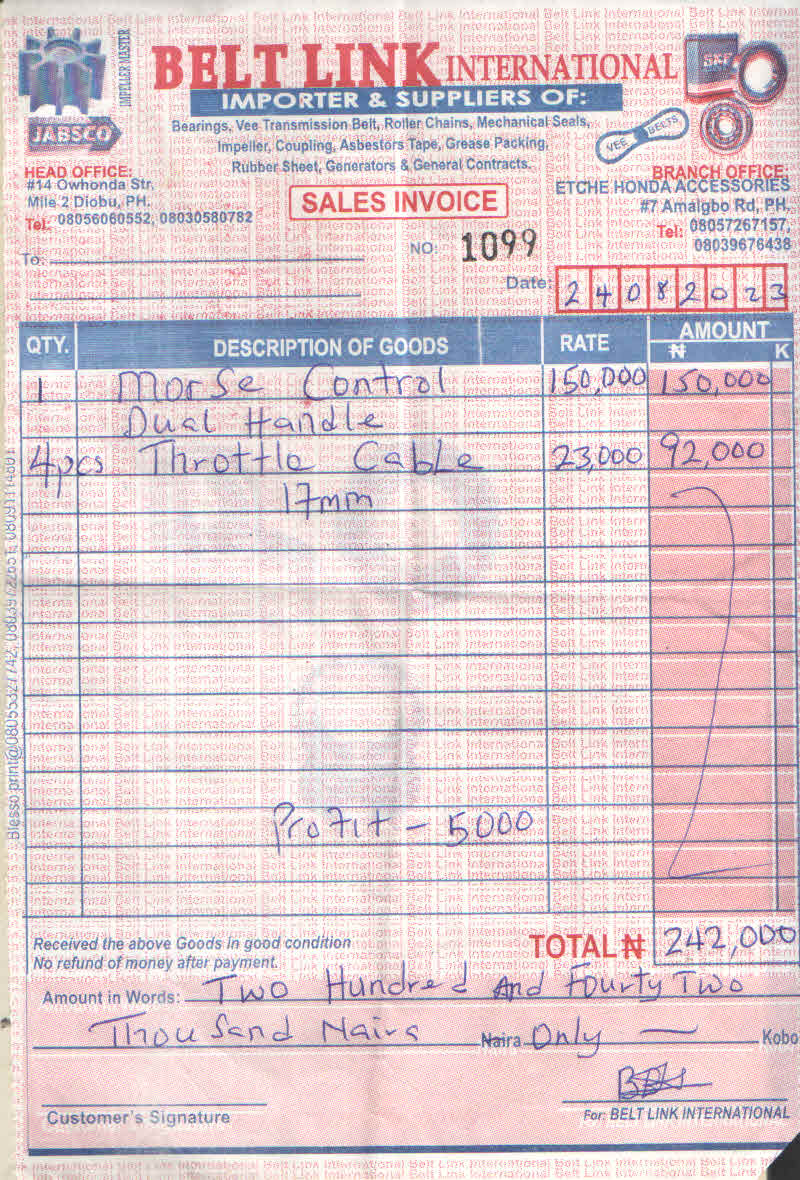 IMPELLER MASTER
JABSCO
BELT LINK INTERNATIONAL
IMPORTER & SUPPLIERS OF:
SKF
VEE BELTS
Bearings, Vee Transmission Belt, Roller Chains, Mechanical Seals,
Impeller, Coupling, Asbestors Tape, Grease Packing,
Rubber Sheet, Generators & General Contracts.
HEAD OFFICE:
#14 Owhonda Str,
Mile 2 Diobu, PH.
Tel: 08056060552, 08030580782
SALES INVOICE
BRANCH OFFICE:
ETCHE HONDA ACCESSORIES
#7 Amaigbo Rd, PH,
Tel: 08057267157,
08039676438
To:
NO: 1099
Date: 24082023
QTY. DESCRIPTION OF GOODS RATE AMOUNT
₦ K
1 Morse Control 150,000 150,000
Dual Handle
4pcs Throttle Cable 23,000 92,000
17mm
Profit - 5000
Received the above Goods in good condition
No refund of money after payment.
TOTAL ₦ 242,000
Amount in Words: Two Hundred And Fourty Two
Thousand Naira Naira Only — Kobo
Customer's Signature
For: BELT LINK INTERNATIONAL